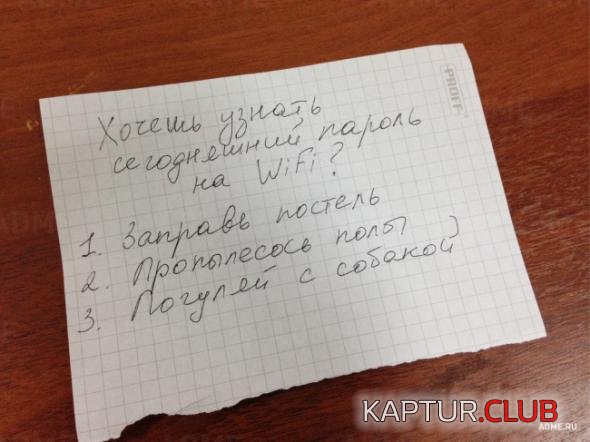 PROFF
Хочешь узнать
сегодняшний пароль
на WiFi?
1. Заправь постель
2. Пропылесось полы
3. Погуляй с собакой)
KAPTUR.CLUB
ADME.RU